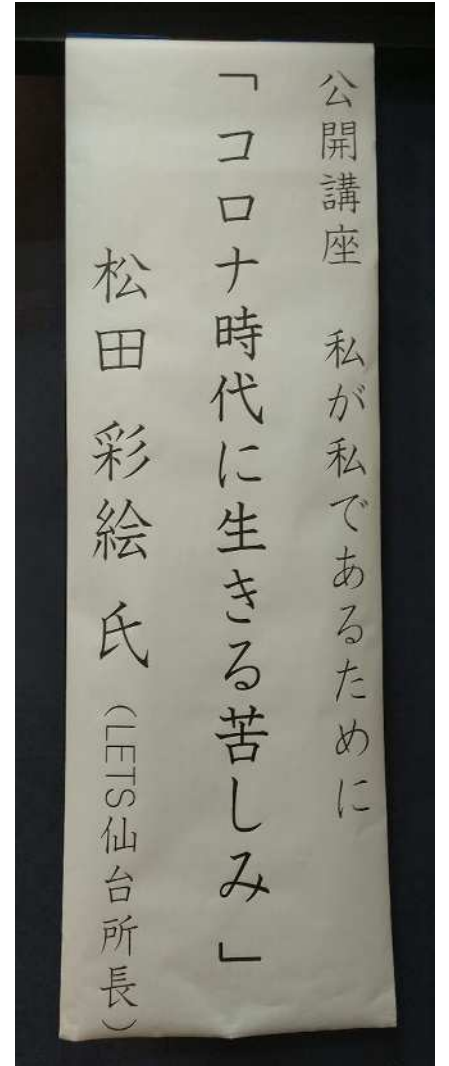 公開講座　私が私であるために
「コロナ時代に生きる苦しみ」
松田　彩絵　氏（LETS仙台所長）